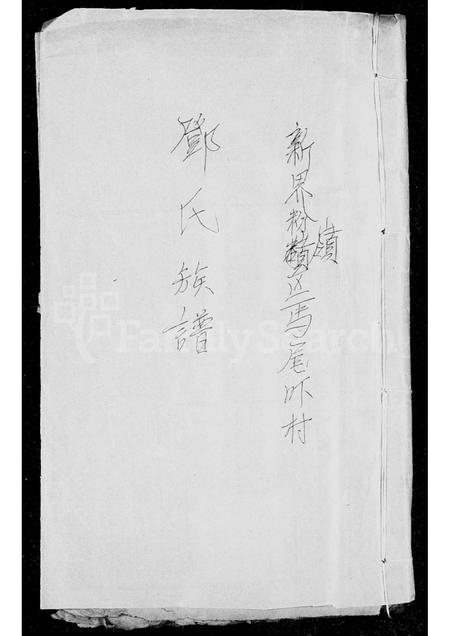 新界粉嶺區馬尾吓村
嶺
鄧氏族譜
FamilySearch